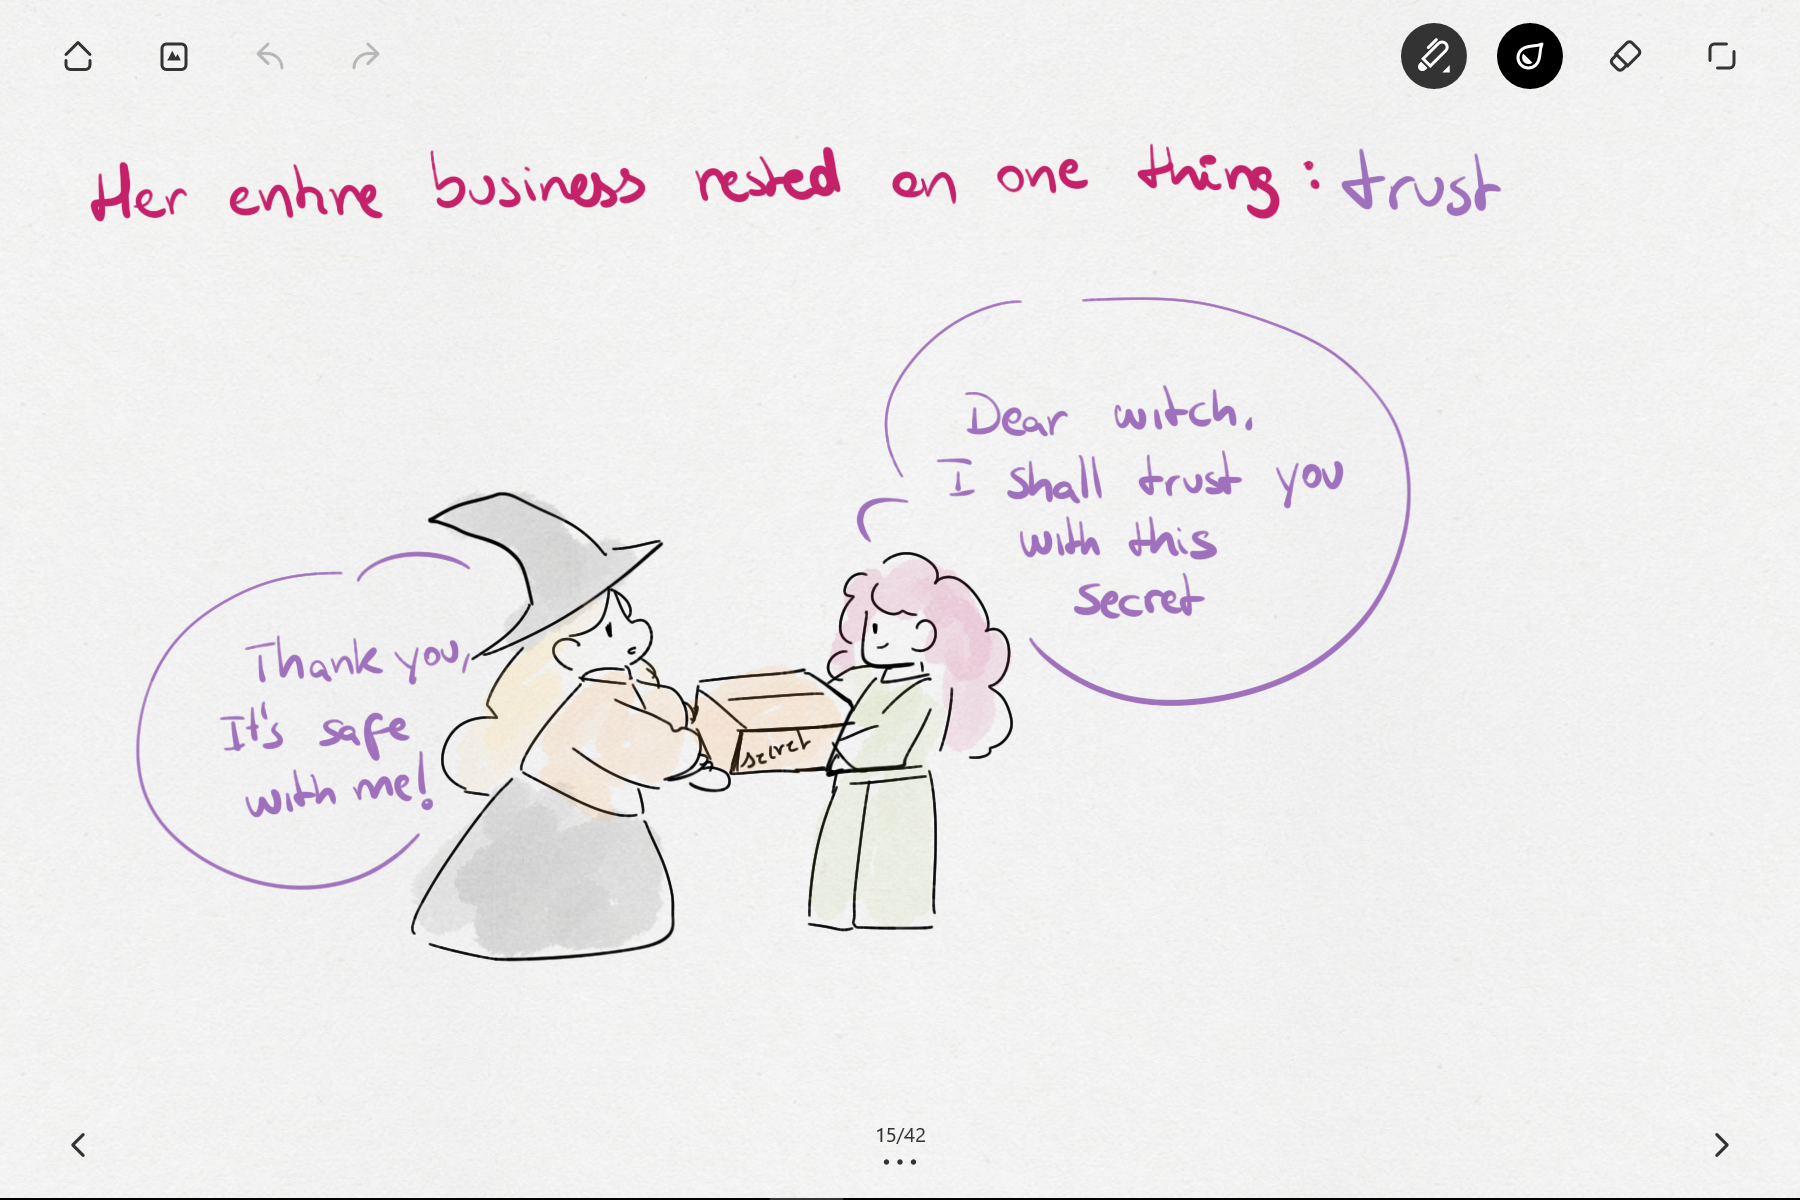 Her entire business rested on one thing: trust
Dear witch,
I shall trust you
with this
secret
Thank you,
It's safe
with me!
secret
15/42